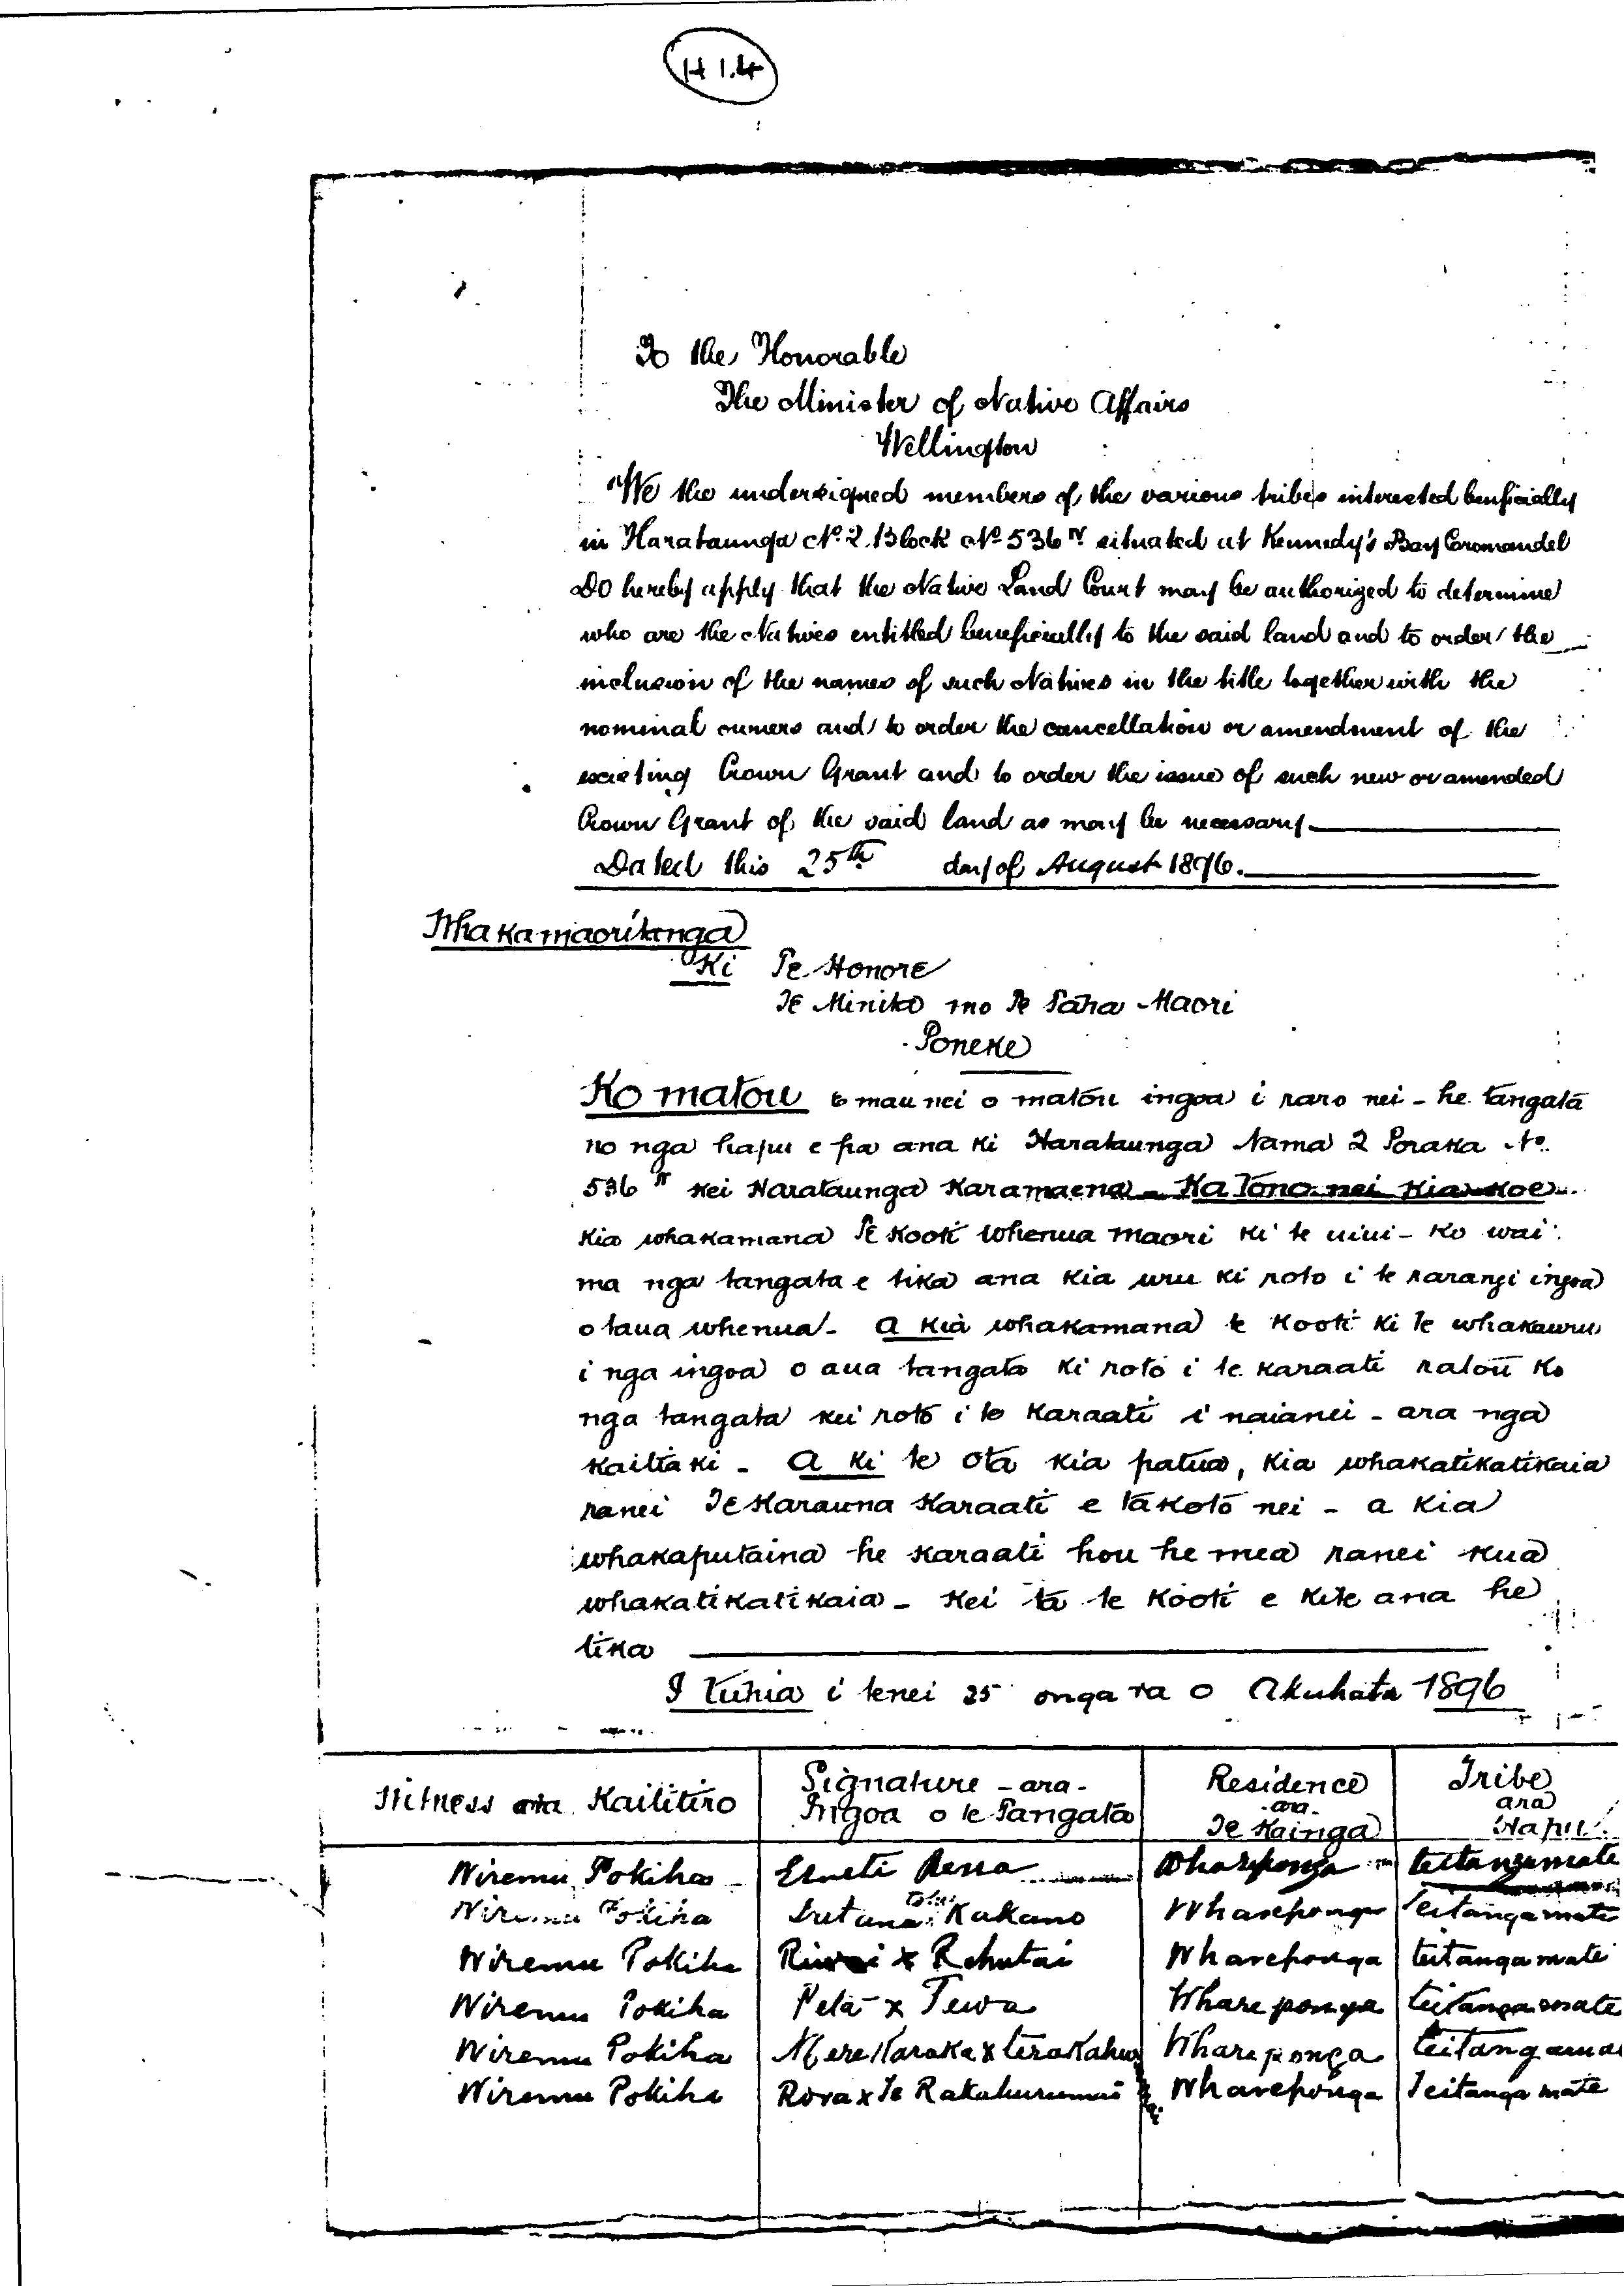 H 1.4
To the Honorable
The Minister of Native Affairs
Wellington
We the undersigned members of the various tribes interested benficially
in Harataunga No 2 Block No 536N situated at Kennedy's Bay Coromandel
Do hereby apply that the Native Land Court may be authorized to determine
who are the Natives entitled beneficially to the said land and to order the
inclusion of the names of such Natives in the title together with the
nominal owners and to order the cancellation or amendment of the
existing Crown Grant and to order the issue of such new or amended
Crown Grant of the said land as may be necessary.
Dated this 25th day of August 1896.
Whakamaoritanga
Ki Te Honore
Te Minita mo Te Taha Maori
Poneke
Ko matou e mau nei o matou ingoa i raro nei - he tangata
no nga hapu e pa ana ki Harataunga Nama 2 Poraka No.
536 N kei Harataunga Karamaena - Ka Tono nei Kia koe
Kia whakamana Te Kooti whenua maori ki te uiui - Ko wai
ma nga tangata e tika ana kia uru ki roto i te rarangi ingoa
o taua whenua - a kia whakamana te Kooti ki te whakauru
i nga ingoa o aua tangata ki roto i te karaati ratou ko
nga tangata kei roto i te Karaati i naianei - ara nga
kaitiaki - a ki te ota kia patua, kia whakatikatikaia
ranei Te Karauna Karaati e takoto nei - a kia
whakaputaina he karaati hou he mea ranei kua
whakatikatikaia - Kei ta te Kooti e kite ana he
tika
I Tuhia i tenei 25 onga ra o Akuhata 1896
Witness ara Kaititiro Signature - ara - Ingoa o te Tangata Residence - ara - Te Kainga Tribe ara Hapu
Wiremu Pokiha Whareponga teitangamate
Wiremu Pokiha Kakano Whareponga Teitangamate
Wiremu Pokiha x Rehutai Whareponga teitangamate
Wiremu Pokiha Peta x Tewa Whareponga teitangamate
Wiremu Pokiha Mere Karaka x Whareponga
Wiremu Pokiha Rora x Te Whareponga Teitangamate